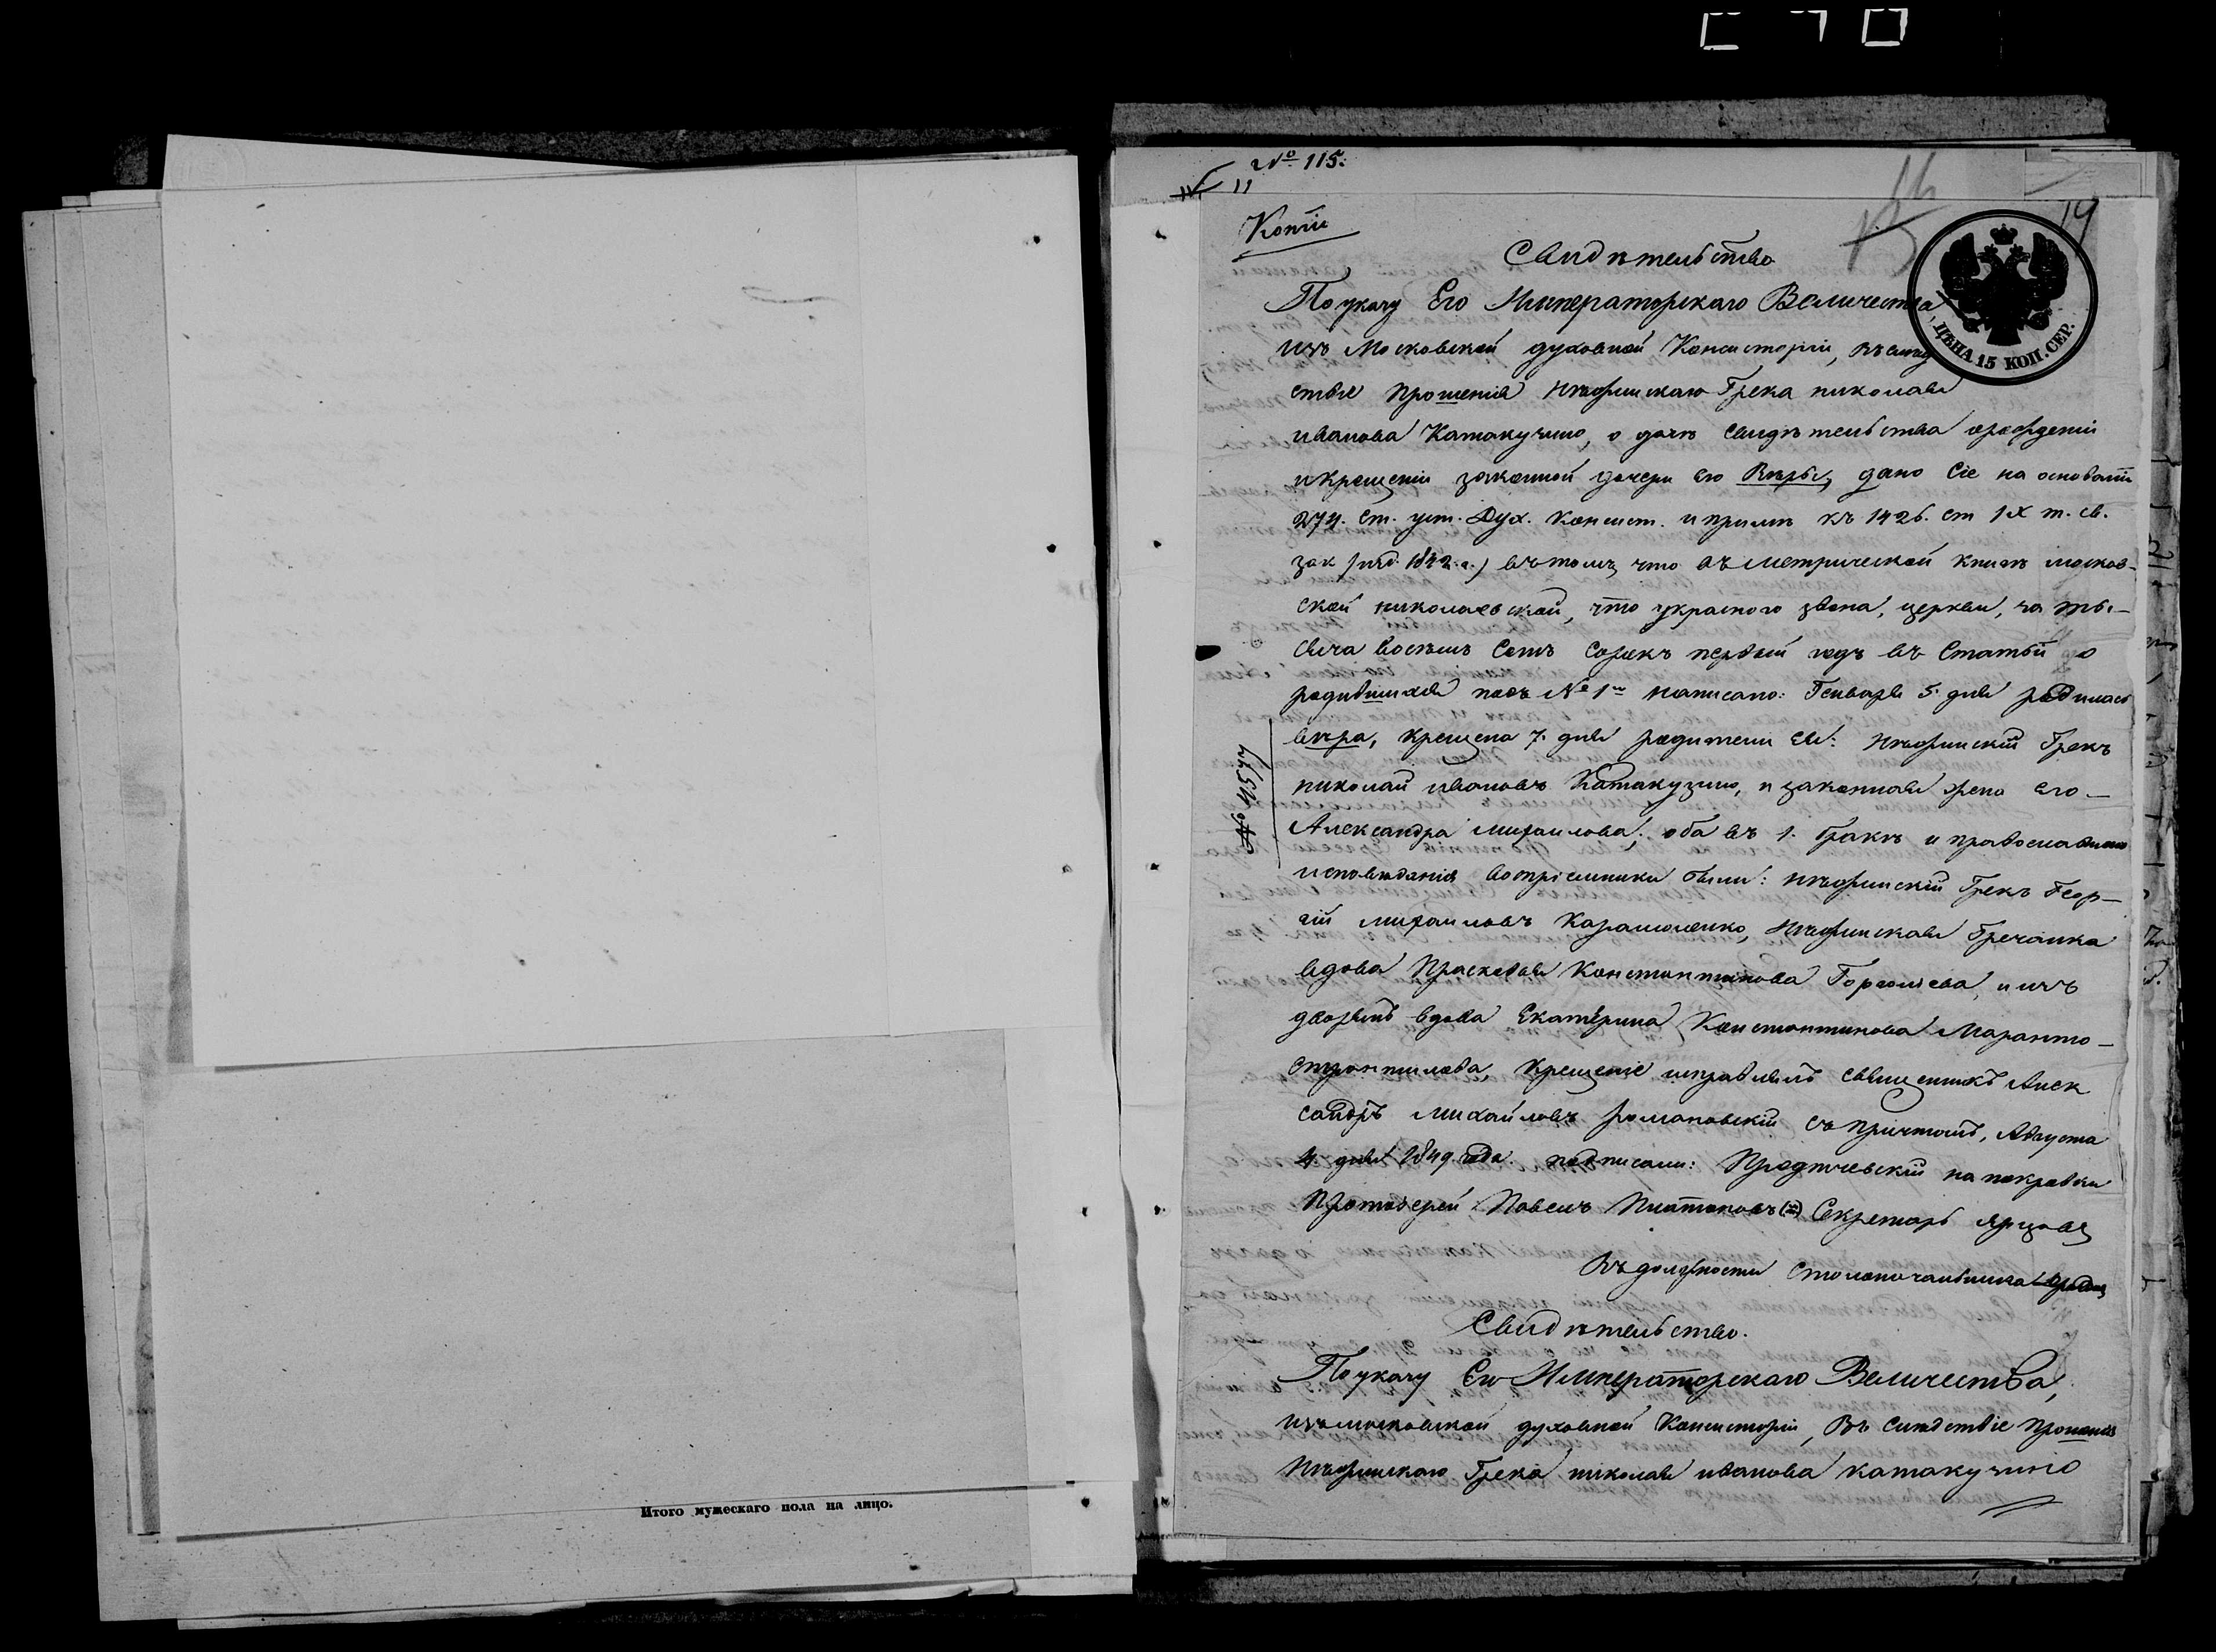 № 115.
11
14
Копія
Свидѣтельство
По указу Его Императорскаго Величества,
ЦѢНА 15 КОП. СЕР.
изъ Московской духовной Консисторіи, въ слѣд
ствіе прошенія нѣжинскаго Грека николая
иванова Катакузино, о дачѣ свидѣтельства орожденіи
икрещеніи законной дочери его Вѣры, дано сіе на основаніи
274. ст. уст. Дух. Консист. и примѣ къ 1426. ст IX т. св.
зак (изд. 1842. г.) въ томъ, что въ метрической книгѣ москов-
ской николаевской, что украснаго звона, церкви, за ты-
сяча восемь сотъ сорокъ первый годъ въ статьи о
родившихся подъ № 1м написано: Генваря 5. дня родилась
вѣра, крещена 7. дня родители ея: нѣжинскій Грекъ
николай ивановъ Катакузино, и законная жена его-
№ 4557
Александра михаилова; оба въ 1. бракѣ и православнаго
исповѣданія воспріемники были: нѣжинскій Грекъ Геор-
гій михаиловъ нѣжинская Гречанка
вдова Прасковья Константинова и изъ
дворянъ вдова Екатерина Константинова Маранто-
крещеніе исправлялъ священникъ Алек
сандръ михайловъ романовскій съ причтомъ, Августа
4 дня 1849 года. подписали: Предтечевскій на покровки
Протоіерей, Павелъ Платоновъ Секретарь
Въ должности столоначальника
Свидѣтельство.
По указу Его Императорскаго Величества,
изъ московской духовной Консисторіи, Въ слѣдствіе прошенія
нѣжинскаго Грека николая иванова катакузино
Итого мужескаго пола на лицо.